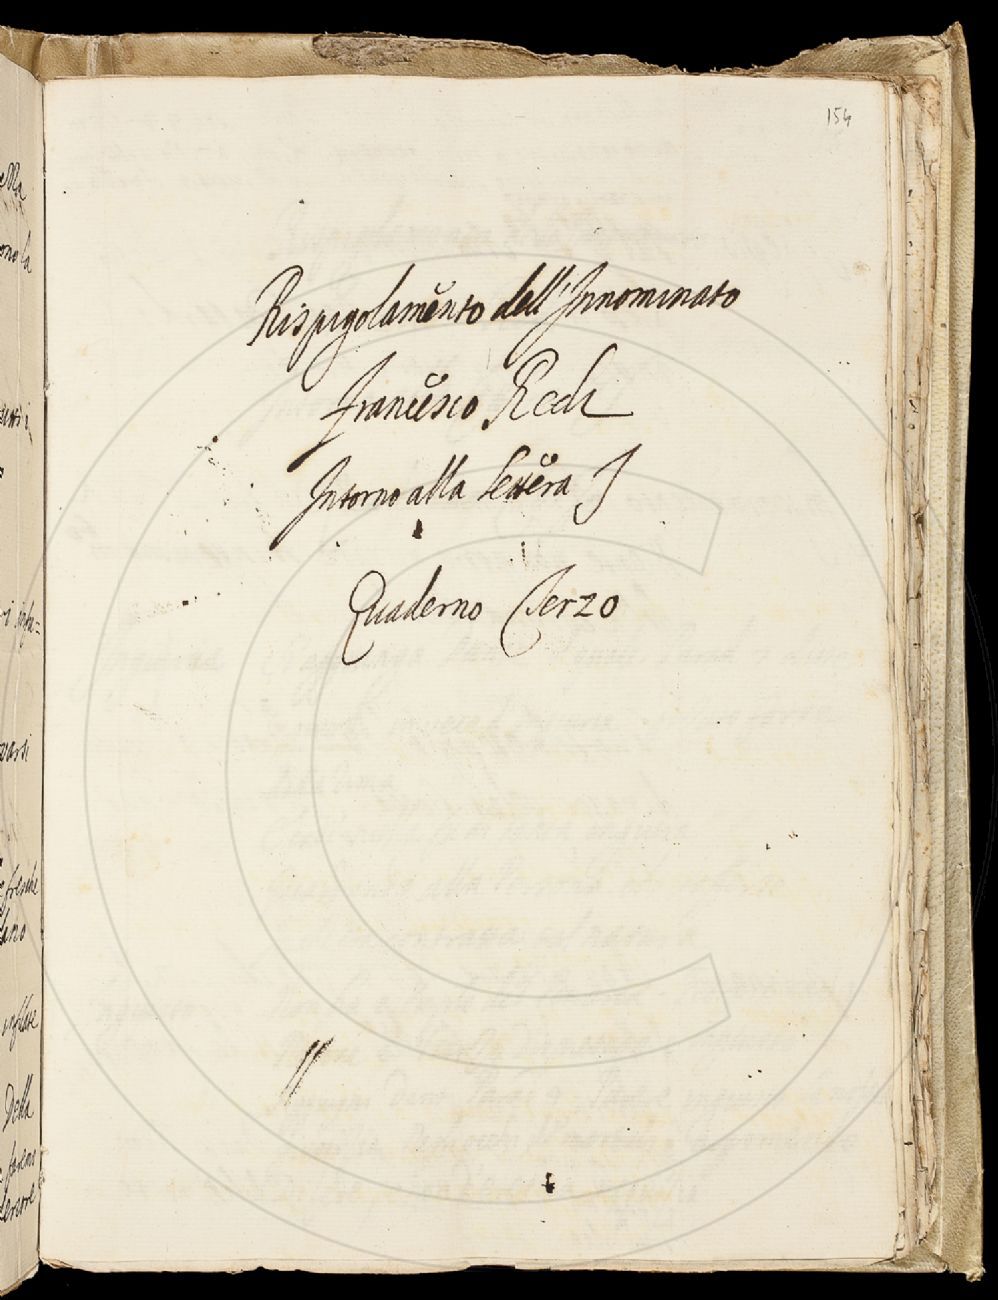 154
Rispigolamento dell'Innominato
Francesco Redi
Intorno alla Lettera I
Quaderno Terzo